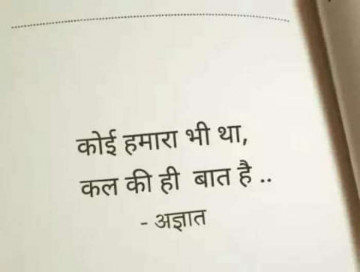 कोई हमारा भी था,
कल की ही बात है ..
- अज्ञात